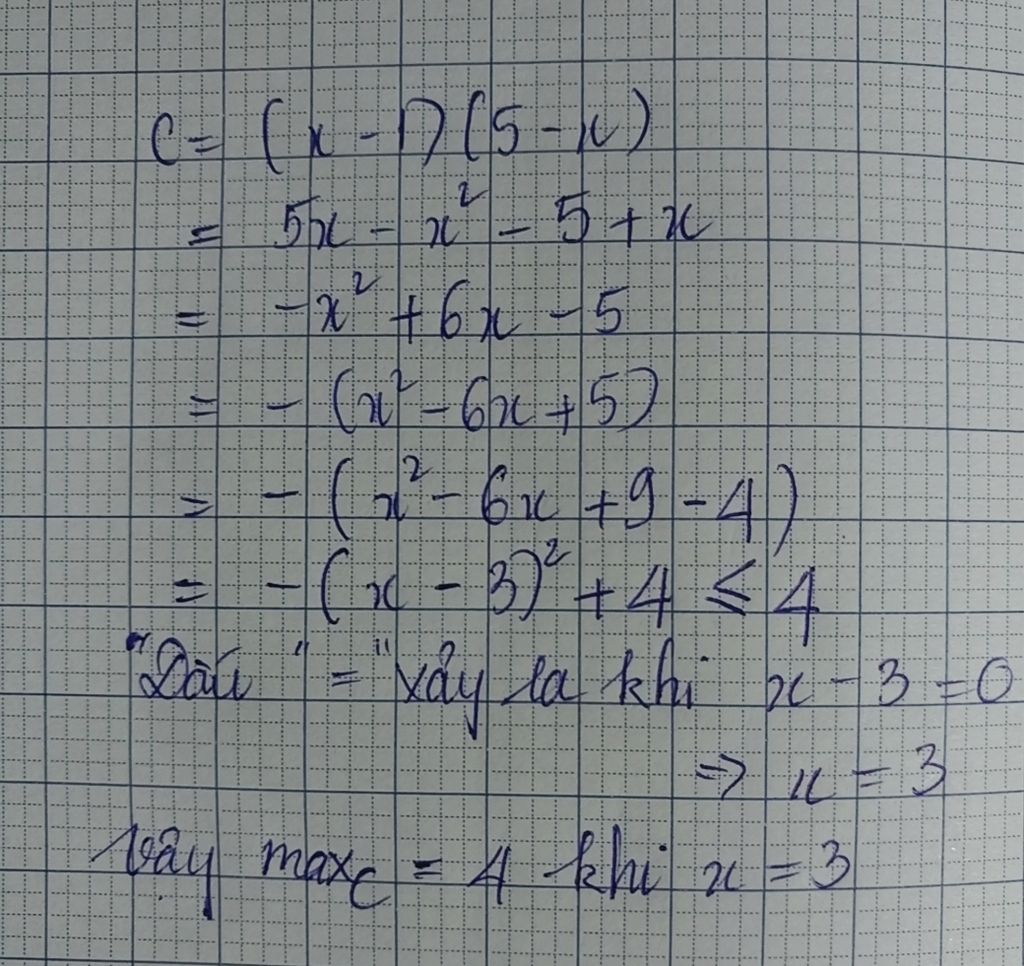 C = (x - 1)(5 - x)
= 5x - x² - 5 + x
= -x² + 6x - 5
= - (x² - 6x + 5)
= - (x² - 6x + 9 - 4)
= - (x - 3)² + 4 ≤ 4
"Dấu "=" xảy ra khi x - 3 = 0
⇒ x = 3
Vậy maxC = 4 khi x = 3